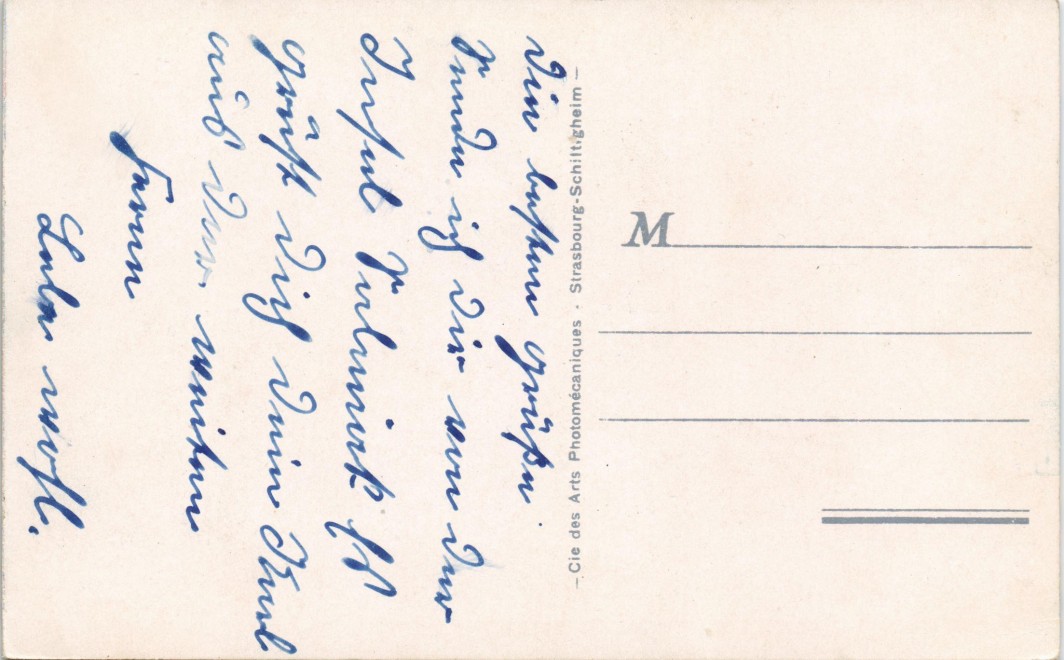 Die besten Grüße
sende ich dir von der
Insel Es
grüßt dich dein Karl
aus der weiten
Ferne
Lebe wohl.
— Cie des Arts Photomécaniques · Strasbourg-Schiltigheim —
M